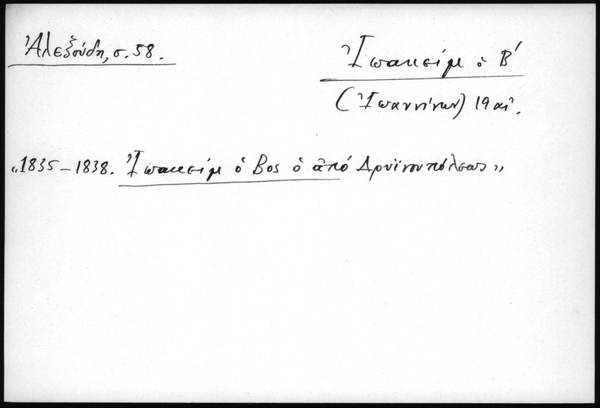 Ἀλεξούδη, σ. 58.
Ἰωακεὶμ ὁ Β΄
(Ἰωαννίνων) 19 αἰ.
„1835 – 1838. Ἰωακεὶμ ὁ Βος ὁ ἀπό Δρυϊνουπόλεως”